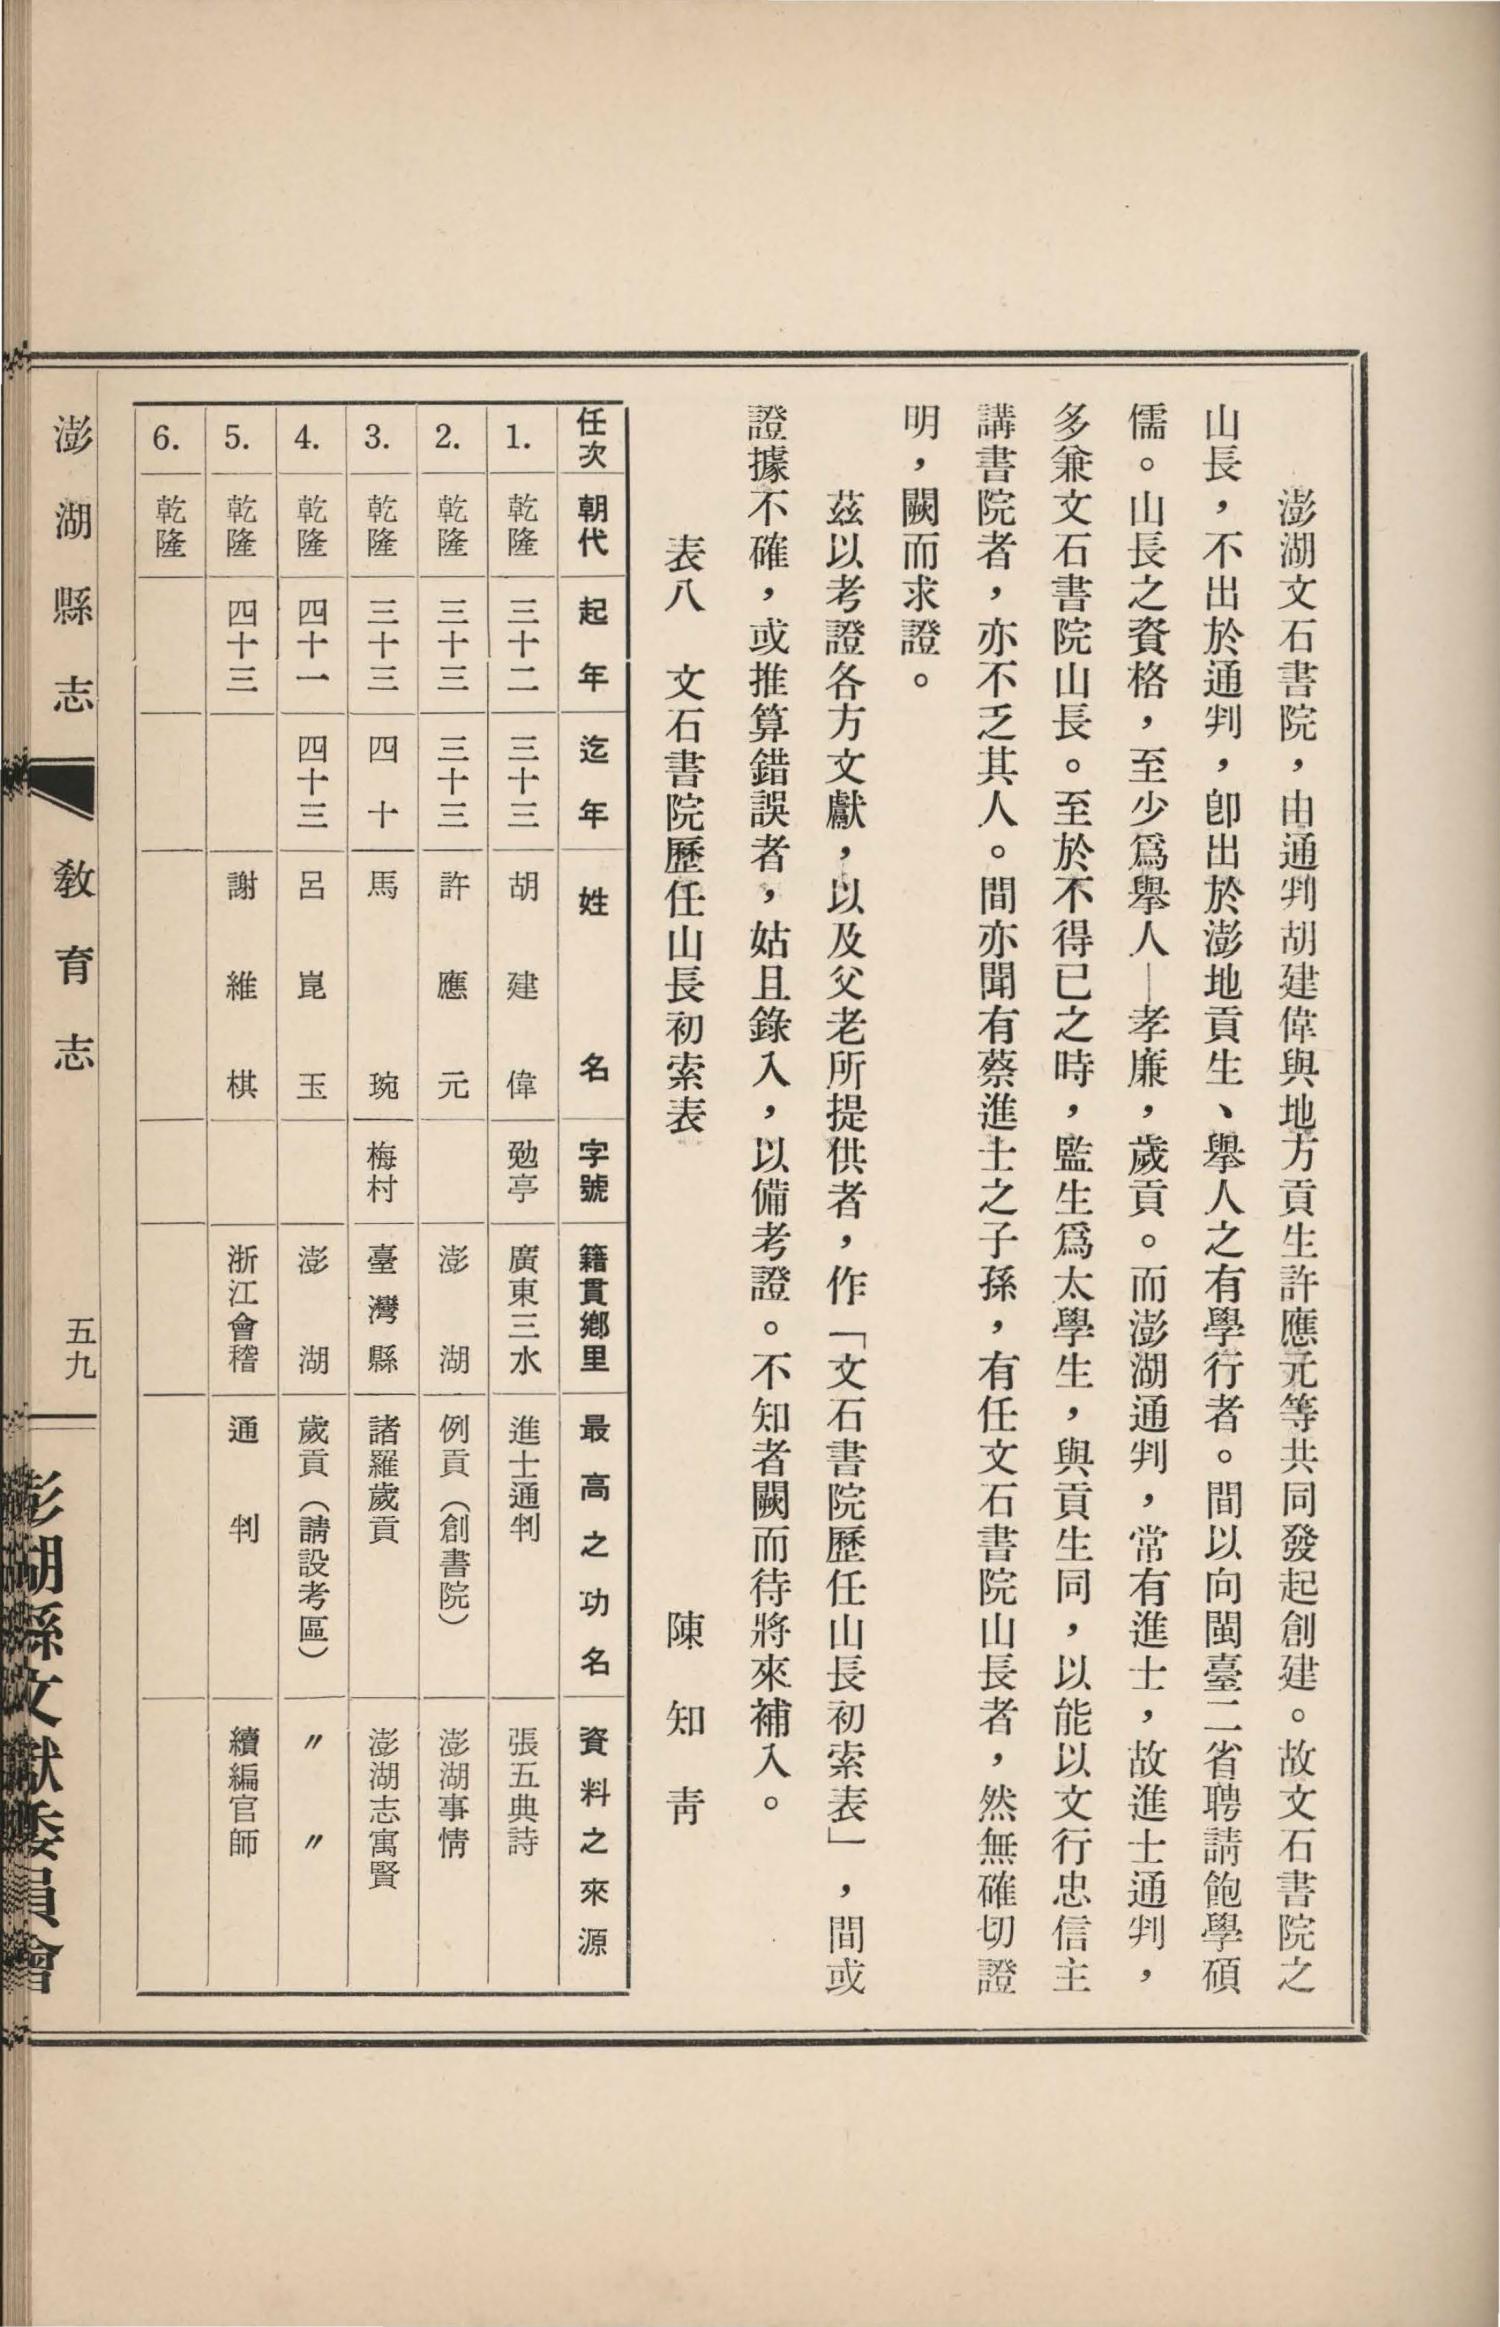 澎湖文石書院，由通判胡建偉與地方貢生許應元等共同發起創建。故文石書院之
山長，不出於通判，卽出於澎地貢生、舉人之有學行者。間以向閩臺二省聘請飽學碩
儒。山長之資格，至少爲舉人—孝廉，歲貢。而澎湖通判，常有進士，故進士通判，
多兼文石書院山長。至於不得已之時，監生爲太學生，與貢生同，以能以文行忠信主
講書院者，亦不乏其人。間亦聞有蔡進士之子孫，有任文石書院山長者，然無確切證
明，闕而求證。
茲以考證各方文獻，以及父老所提供者，作「文石書院歷任山長初索表」，間或
證據不確，或推算錯誤者，姑且錄入，以備考證。不知者闕而待將來補入。
表八　文石書院歷任山長初索表　陳知靑
任次　朝代　起年　迄年　姓名　字號　籍貫鄕里　最高之功名　資料之來源
1.　乾隆　三十二　三十三　胡建偉　勉亭　廣東三水　進士通判　張五典詩
2.　乾隆　三十三　三十三　許應元　澎湖　例貢（創書院）　澎湖事情
3.　乾隆　三十三　四十　馬琬　梅村　臺灣縣　諸羅歲貢　澎湖志寓賢
4.　乾隆　四十一　四十三　呂崑玉　澎湖　歲貢（請設考區）　〃　〃
5.　乾隆　四十三　謝維祺　浙江會稽　通判　續編官師
6.　乾隆
澎湖縣志　敎育志　五九
澎湖縣文獻委員會